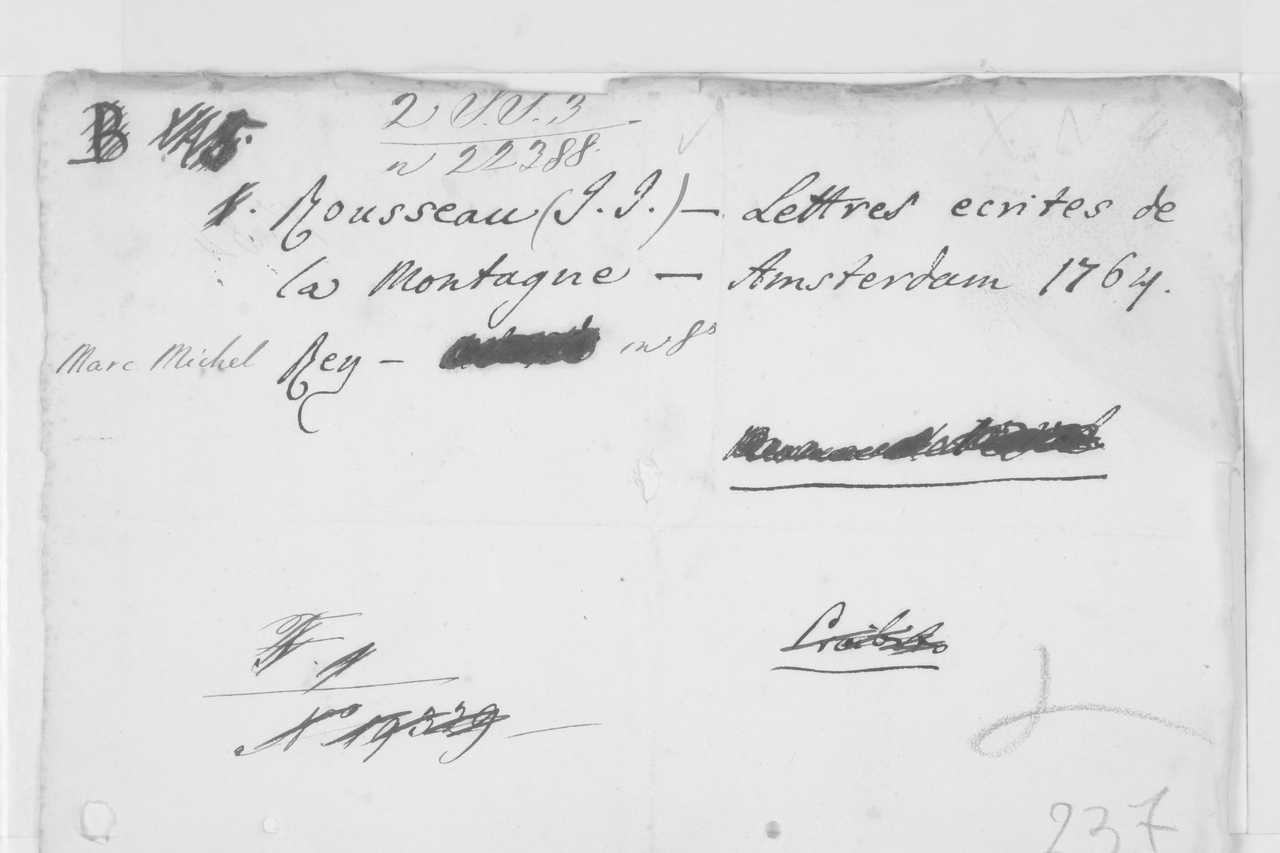 B
2 S.S. 3
n 22388.
1. Rousseau (J. J.) — Lettres ecrites de
la Montagne — Amsterdam 1764.
Marc Michel Rey — in 8°
Proibito
F. 1
N° 19339
237